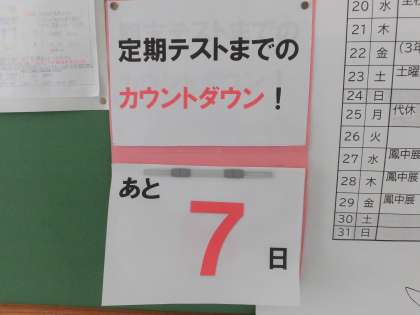 定期テストまでの
カウントダウン！
あと
7
日
20 水
21 木
22 金 (3年
23 土 土曜
24 日
25 月 代休
26 火
27 水 鳳中展
28 木 鳳中展
29 金 鳳中展
30 土
31 日